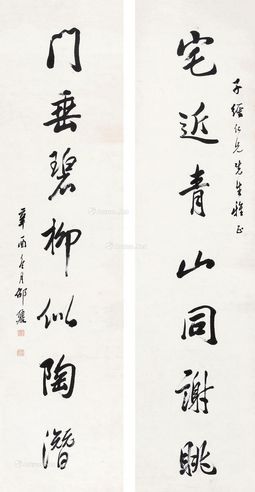 子緟仁兄先生雅正
宅近青山同謝眺
門垂碧柳似陶潛
辛酉冬月邵章